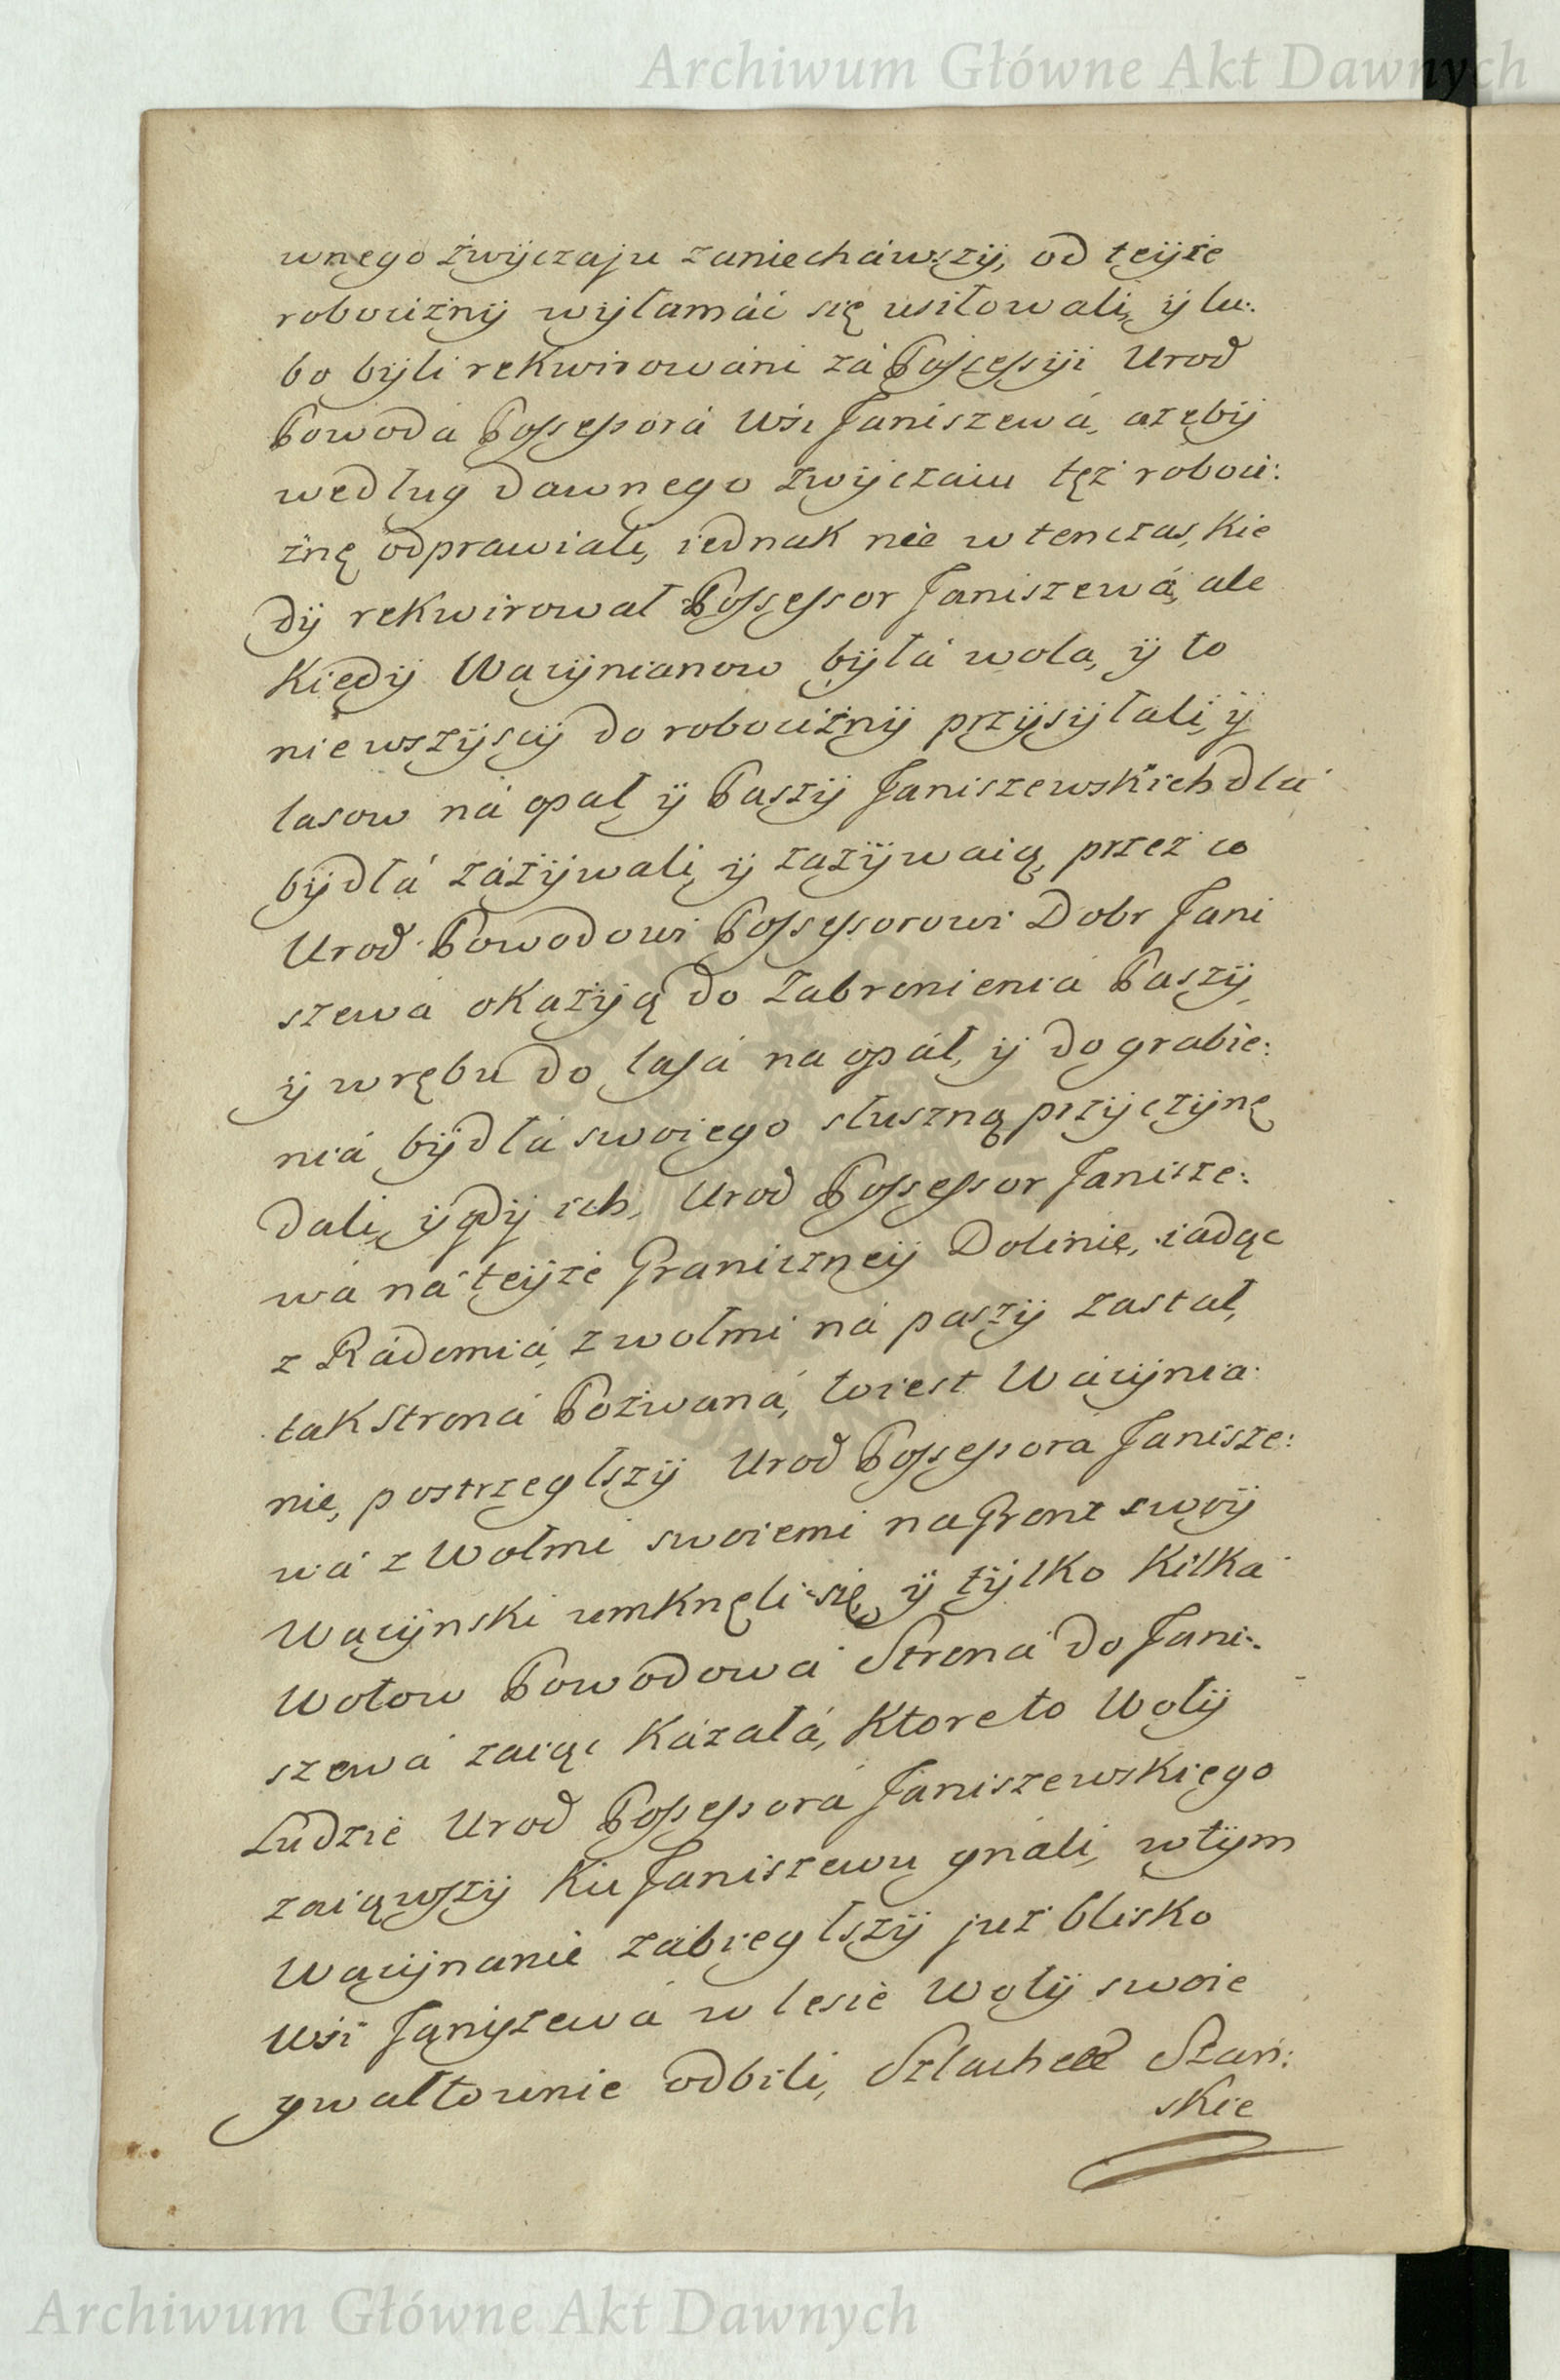 Archiwum Główne Akt Dawnych
wnego zwÿczaju zaniecháwszÿ, od teÿże
robociznÿ wÿłamáć się usiłowali, ÿ lu:
bo bÿli rekwirowáni zá Possessÿi Urod
Powodá Possessorá Wsi Janiszewá, ażebÿ
według dawnego zwÿczaiu też roboci:
znę odprawiali, iednak nie wtenczas, kie
dÿ rekwirował Possessor Janiszewá, ale
kiedÿ Wacÿnianow bÿłá wola, ÿ to
niewszÿscÿ do robociznÿ przÿsÿłali, ÿ
lasow ná opał ÿ Paszÿ Janiszewskich dlá
bÿdłá záżÿwali, ÿ zażÿwaią, przez co
Urod Powodowi Possessorowi Dobr Jani
szewá okazÿą do zabronieniá Paszÿ,
ÿ wrębu do lasá na opáł, ÿ do grabie:
niá bÿdłá swoiego słuszną przÿczÿnę
dali, ÿ gdÿ ich, Urod Possessor Janisze:
wá ná teÿże Graniczneÿ Dolinie, iadąc
z Rádomiá, z wołmi ná paszÿ zastał,
tak Stroná Pozwaná, to iest Wácÿnia
nie, postrzegłszÿ Urod Possessorá Janisze:
wá z Wołmi swoiemi na Gront swoÿ
Wacÿnski umknęli się, ÿ tÿlko kilka
Wołow Powodowá Stroná do Jani:
szewá zaiąc kázałá, ktore to Wołÿ
Ludzie Urod Possessorá Janiszewskiego
zaiąwszÿ ku Janiszewu gnáli, wtÿm
Wacÿnanie zabiegłszÿ już blisko
Wsi Janiszewá w lesie Wołÿ swoie
gwałtownie odbili, Szlachet Stan:
skie
Archiwum Główne Akt Dawnych